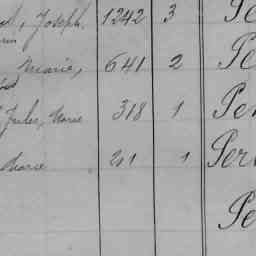 Joseph 1242 3 Pe
Marie, 641 2 Pe
Jules, Marie 318 1 Per
Marie 211 1 Per
Pe